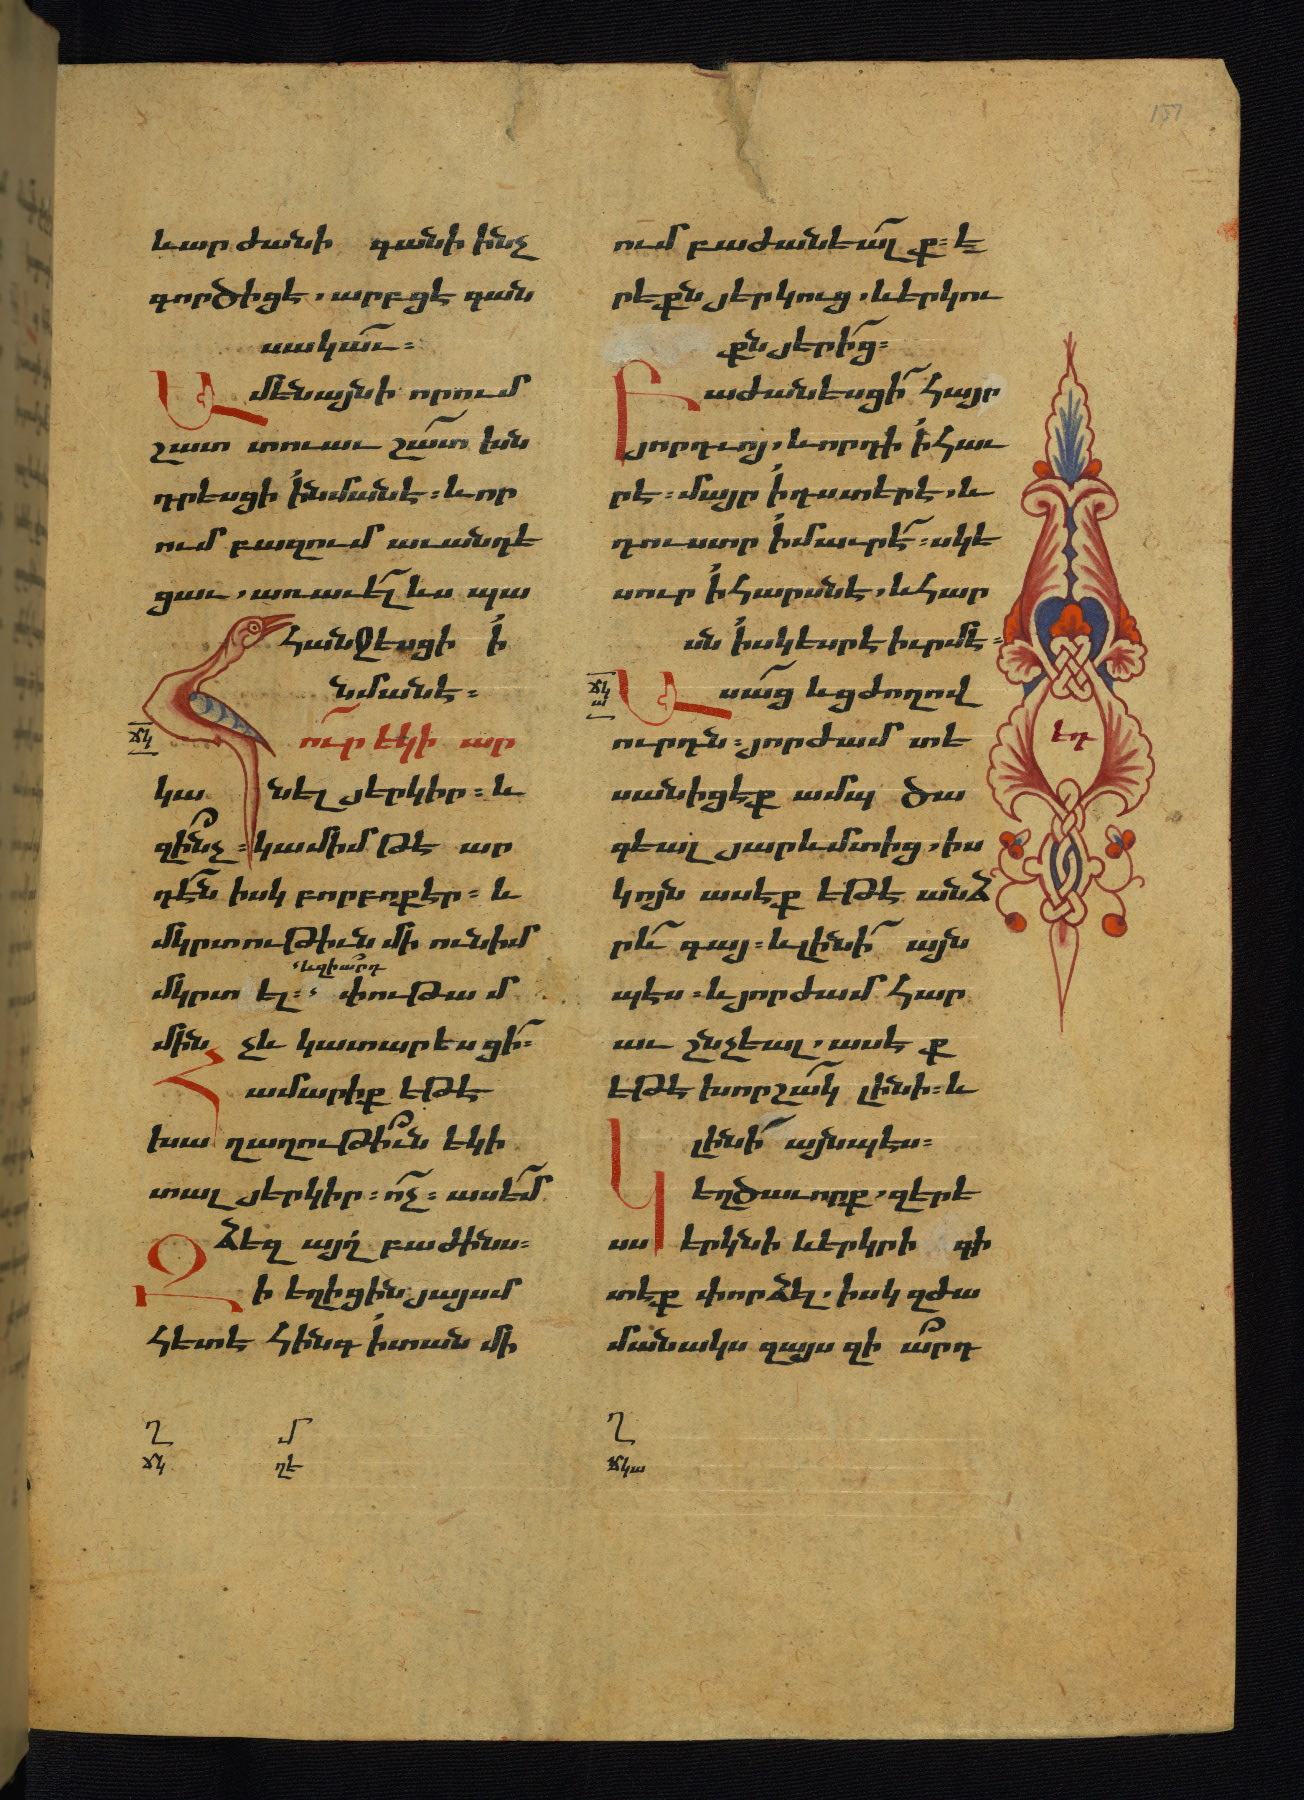 և արժանի գանի ինչ
գործիցէ, արբցէ գան
սակաւ։
Ամենայնի որում
շատ տուաւ շատ խն
դրեսցի ՛ի նմանէ։ և որ
ում բազում աւանդե
ցաւ, առաւել ևս պա
հանջեսցի ՛ի
նմանէ։
ճկ
Հուր եկի ար
կանել յերկիր։ և
զինչ։ կամիմ թէ ար
դէն իսկ բորբոքէր։ և
մկրտութիւն մի ունիմ
և զիարդ
մկրտել։ փութամ
մինչև կատարեսցի։
Համարիք եթէ
խաղաղութիւն եկի
տալ յերկիր։ ոչ։ ասեմ
ձեզ այղ բաժինս։
Զի եղիցին յայսմ
հետէ հինգ ՛ի տան մի
Ղ Մ
ճկ ղե
157
ում բաժանեալք։ ե
րեքն յերկուց, և երկու
քն յերից։
Բաժանեսցի հայր
յորդւոյ, և որդի ՛ի հաւ
րէ։ մայր ՛ի դստերէ, և
դուստր ՛ի մաւրէ։ սկե
սուր ՛ի հարսնէ, և հար
սն ՛ի սկեսրէ իւրմէ։
ճկա
Ասաց և ցժողով
ուրդն։ յորժամ տե
սանիցէք ամպ ծա
գեալ յարևմտից, իս
կոյն ասէք եթէ անձ
րև գայ։ և լինի այն
պէս։ և յորժամ հար
աւ շնչեալ, ասէք
եթէ խորշակ լինի։ և
լինի այնպէս։
Կեղծաւորք, զերե
սս երկնի և երկրի գի
տէք փորձել, իսկ զժա
մանակս զայս զի արդ
Ղ
ճկա
եդ